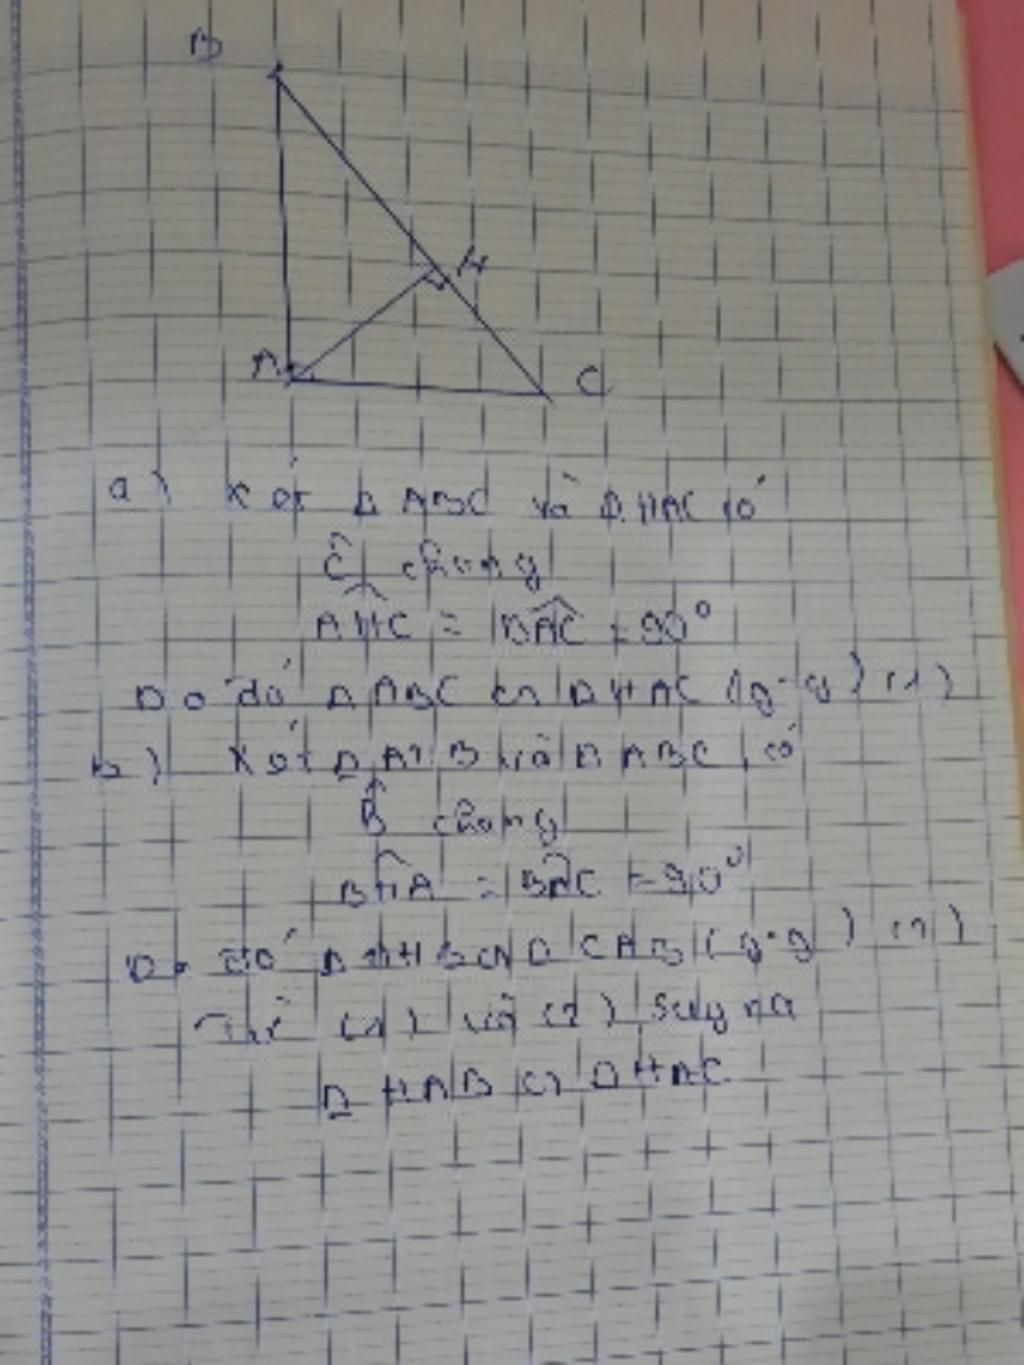 B
H
A
C
a) Xét Δ ABC và Δ HAC có
Ĉ chung
AHC = BAC = 90°
Do đó Δ ABC ∽ Δ HAC (g-g) (1)
b) Xét Δ AHB và Δ ABC có
B̂ chung
BHA = BAC = 90°
Do đó Δ AHB ∽ Δ CAB (g-g) (2)
Từ (1) và (2) suy ra
Δ HAB ∽ Δ HAC